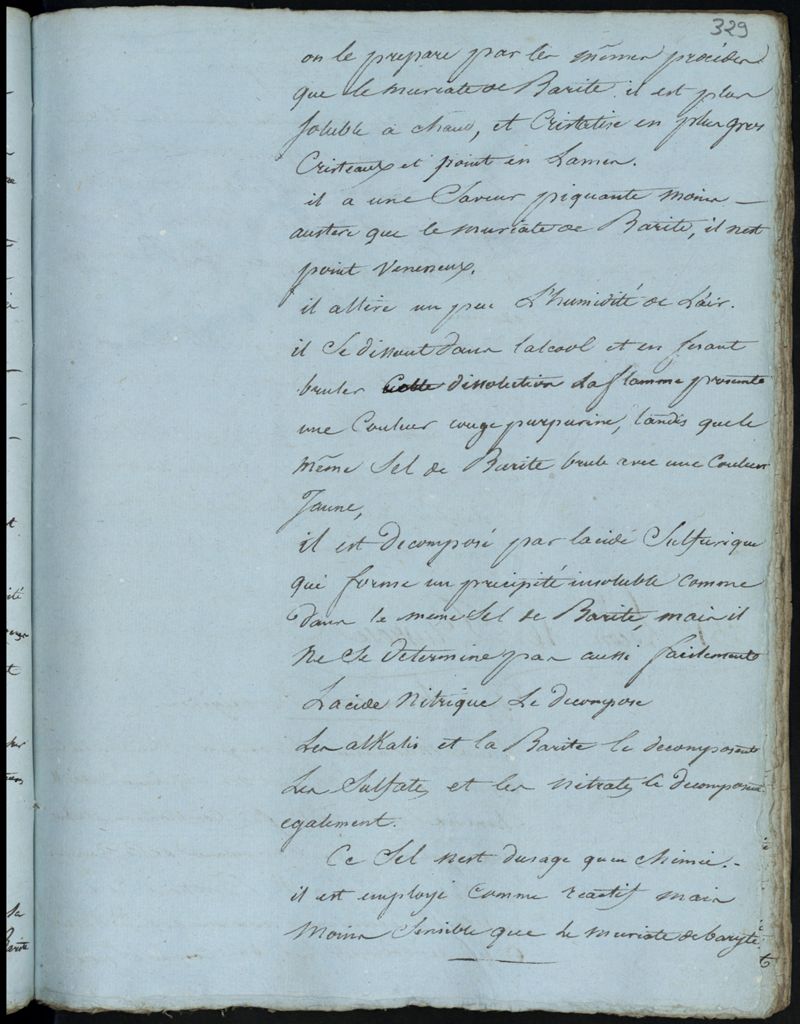 329
on le prepare par les mêmes procédés
que le muriate de Barite. il est plus
soluble a chaud, et Cristalise en plus gros
Cristeaux et point en Lames.
il a une Saveur piquante moins —
austere que le muriate de Barite, il nest
point Veneneux.
il attire un peu L'humidité de L'air.
il Se dissout dans l'alcool et en fesant
bruler Cette dissolution La flamme presente
une Couleur rouge purpurine, tandis que le
même Sel de Barite brule avec une Couleur
Jaune,
il est Decomposé par lacide Sulfurique
qui forme un precipité insoluble comme
dans le meme Sel de Barite, mais il
ne Se determine pas aussi facilement
Lacide Nitrique Le decompose
Les alkalis et la Barite le decomposent
Les Sulfates et les nitrates le decomposent
egalement.
Ce Sel nest dusage quen chimie. -
il est employé comme reactif mais
moins Sensible que Le muriate de baryte